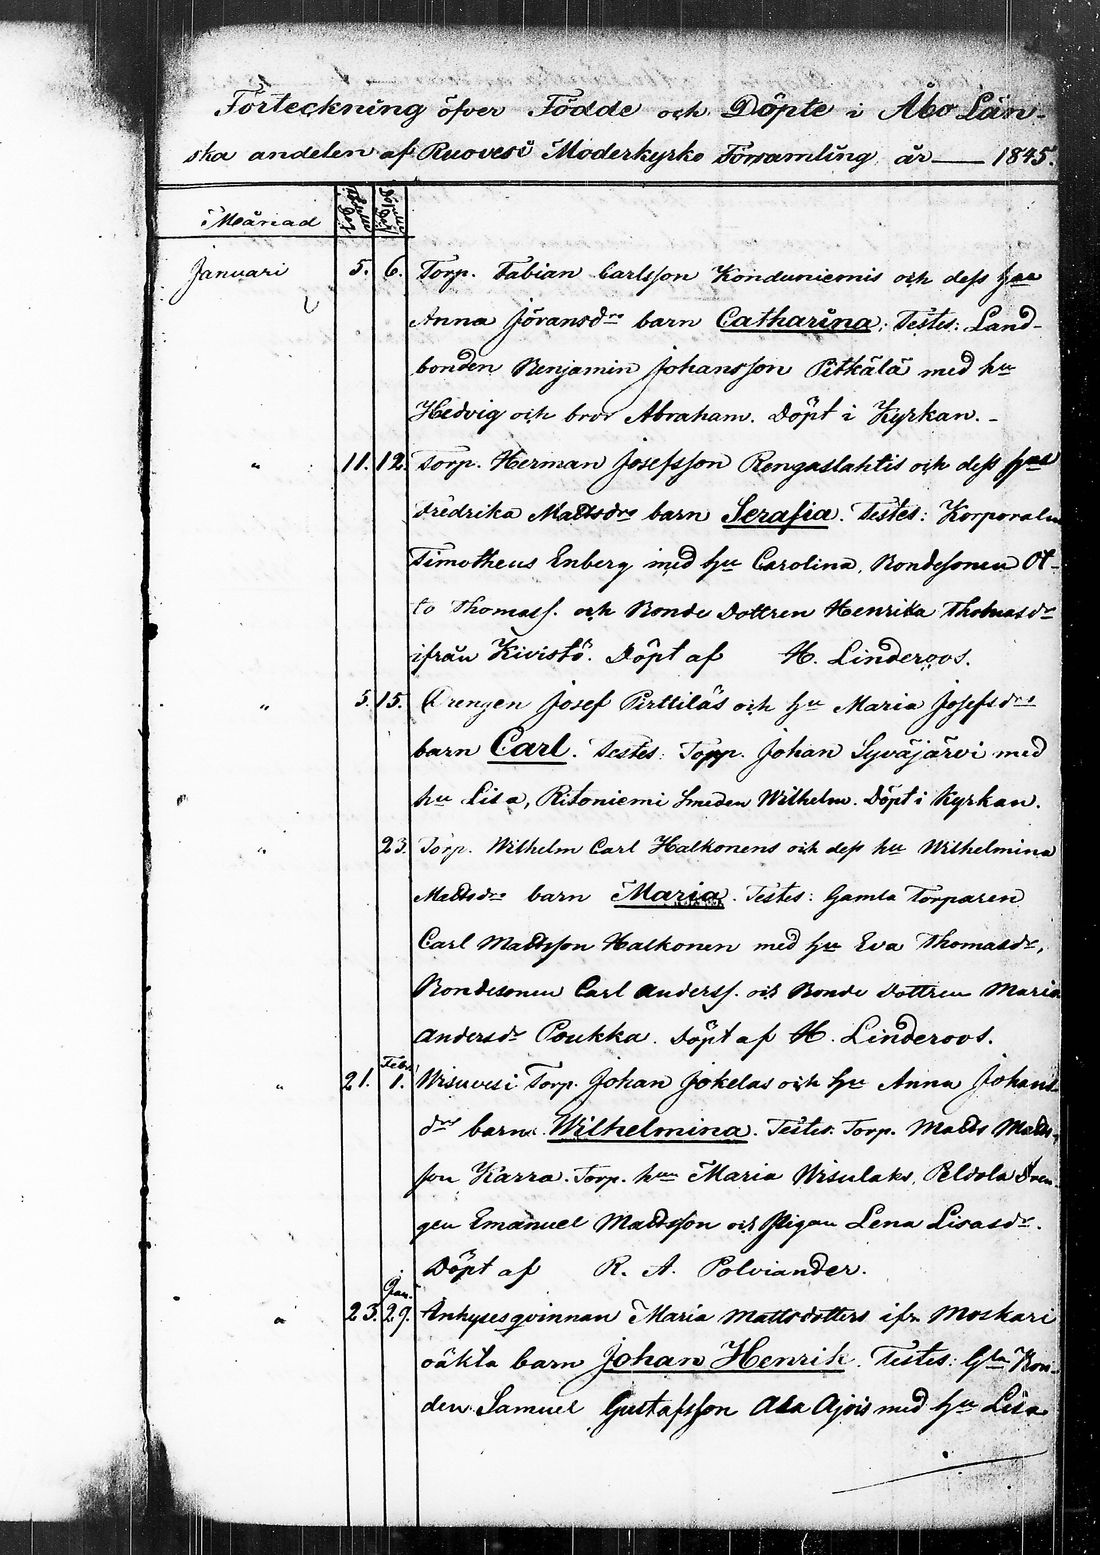 Förteckning öfver Födde och Döpte i Åbo Län-
ska andelen af Ruovesi Moderkyrko Församling år — 1845.
Månad
Januari 5. 6. Torp. Fabian Carlsson Konduniemis och dess hus
Anna Jöransdrs barn Catharina; Testes: Land-
bonden Benjamin Johansson Pitkälä med hu
Hedvig och bror Abraham. Döpt i Kyrkan. -
" 11. 12. Torp. Herman Josefsson Rengaslahtis och dess hus
Fredrika Mattsdrs barn Serafia. Testes: Korporalen
Timotheus Enberg med hu Carolina, Bondesonen Ot-
to Thomass. och Bonde Dottren Henrika Thomasdr
ifrån Kivistö. Döpt af H. Linderoos.
" 5. 15. Drengen Josef Pirttiläs och hu Maria Josefsdrs
barn Carl. Testes: Topp. Johan Syväjärvi med
hu Lisa, Ritoniemi Smeden Wilhelm. Döpt i Kyrkan.
" 23. Torp. Wilhelm Carl Halkonens och dess hu Wilhelmina
Mattsdrs barn Maria. Testes: Gamla Torparen
Carl Mattsson Halkonen med hu Eva Thomasdr,
Bondesonen Carl Anderss. och Bonde Dottren Maria
Andersdr Poukka. Döpt af H. Linderoos.
Febr.
" 21. 1. Wisuvesi Torp. Johan Jokelas och hu Anna Johans-
drs barn Wilhelmina. Testes. Torp. Matts Matts-
son Karra. Torp. hun Maria Wisulaks, Peldola Dren-
gen Emanuel Mattsson och Pigan Lena Lisasdr.
Döpt af R. A. Polviander.
Jan.
" 23. 29. Inhysesqvinnan Maria Mattsdotters ifr. Moskari
oäkta barn Johan Henrik. Testes: Gla Bon-
den Samuel Gustafsson Ala Ajois med hu Lisa